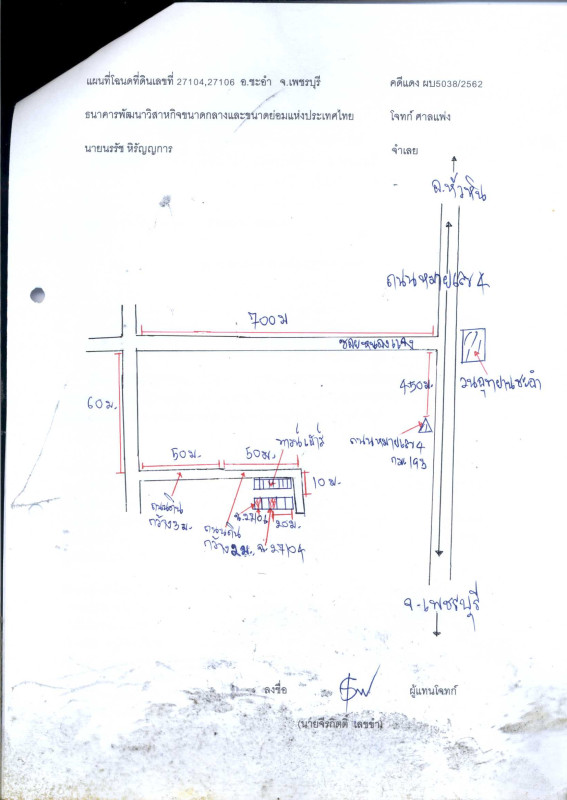 แผนที่โฉนดที่ดินเลขที่ 27104,27106 อ.ชะอำ จ.เพชรบุรี คดีแดง ผบ5038/2562
ธนาคารพัฒนาวิสาหกิจขนาดกลางและขนาดย่อมแห่งประเทศไทย โจทก์ ศาลแพ่ง
นายนรรัช หิรัญญการ จำเลย
อ.หัวหิน
ถนนหมายเลข 4
700 ม
ซอยหนองแจง
วนอุทยานชะอำ
450 ม.
60 ม.
ทาวน์เฮ้าส์
ถนนหมายเลข 4
กม 193
50 ม. 50 ม.
10 ม.
ถนนดิน
กว้าง 3 ม.
ฉ.27106
20 ม.
ถนนดิน
กว้าง 2 ม. ฉ.27104
จ.เพชรบุรี
ลงชื่อ ผู้แทนโจทก์
(นายจีรกิตติ์ เลขขำ)